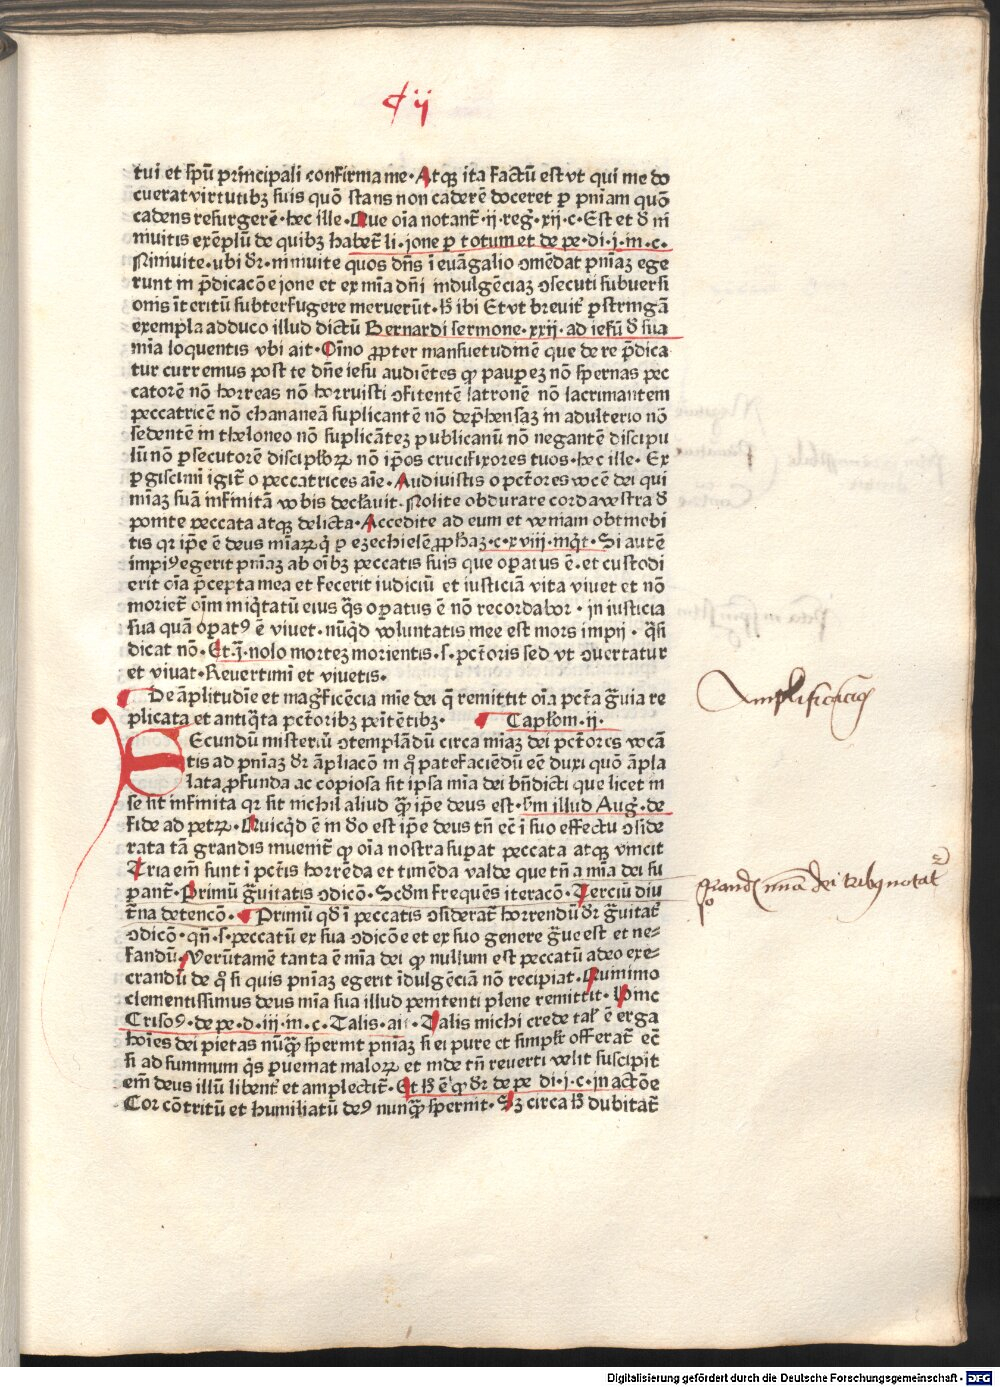 ¶ ij
tui et spū principali confirma me. Atqꝫ ita factū est vt qui me do
cuerat virtutibꝫ suis quō stans non caderē doceret ꝑ pn̄iam quō
cadens resurgerē. hec ille. Que oīa notant̄. ij. reg̃. xij. c. Est et ꝺ ni
niuitis exēplū de quibꝫ habet̄ li. ione ꝑ totum et de pe. di. j. m. c.
Niniuite. vbi ꝺr̄. niniuite quos dn̄s ī euāgalio ꝯmēdat pn̄iaꝫ ege
runt in p̄dicacōe ione et ex mīa dn̄i indulgēciaꝫ ꝯsecuti subuersi
onis īt̄critū subterfugere meruerūt. hꝭ ibi Et vt breuit̄ ꝑstringā
exempla adduco illud dictū Bernardi sermone. xxij. ad iesū ꝺ sua
mīa loquentis vbi ait. Oīno ꝓpter mansuetudinē que de te p̄dica
tur curremus post te dn̄e iesu audiētes ꝙ pauꝑeꝫ nō spernas pec
catorē nō horreas nō horruisti ꝯfitentē latronē nō lacrimantem
peccatricē nō chananeā suplicantē nō dep̄hensaꝫ in adulterio nō
sedentē in theloneo nō suplicāteꝫ publicanū nō negantē discipu
lū nō ꝑsecutorē discipl̄orꝝ nō ip̄os crucifixores tuos. hec ille. Ex
ꝑgiscimī igit̄ o peccatrices aīe. Audiuistis o pctōres vocē dei qui
mīaꝫ suā infinitā vobis declarauit. Nolite obdurare corda vestra ꝺ
ponite peccata atqꝫ delicta. Accedite ad eum et veniam obtinebi
tis qꝛ ip̄e ē deus mīarꝝ q̇ ꝑ ezechielē ꝓphaꝫ. c. xviij. inq̇t. Si autē
impiꝰ egerit pn̄iaꝫ ab oībꝫ peccatis suis que oꝑatus ē. et custodi
erit oīa p̄cepta mea et fecerit iudiciū et iusticiā vita viuet et nō
moriet̄ oīm iniq̇tatū eius q̄s oꝑatus ē nō recordabor. in iusticia
sua quā oꝑatꝰ ē viuet. nūq̇d voluntatis mee est mors impij. q̄si
dicat nō. Et. j. nolo morteꝫ morientis. s. pctōris sed vt ꝯuertatur
et viuat. Reuertimī et viuetis.
De āplitudīe et mag̃ficēcia mīe dei q̄ remittit oīa pctā g̃uia re
plicata et antiq̇ta pctōribꝫ peītētibꝫ. Capl̄om. ij.
SEcundū misteriū ꝯtemplādū circa mīaꝫ dei pctōres vocā
tis ad pn̄iaꝫ ꝺr̄ āpliacōm in q̄ patefaciēdū eē duxi quō āpla
lata ꝓfunda ac copiosa sit ipsa mīa dei bn̄dicti que licet in
se sit infinita qꝛ sit nichil aliud q̄ꝫ ip̄e deus est. sm̄ illud Aug̃. de
fide ad petrꝝ. Quicq̇d ē in ꝺo est ip̄e deus tn̄ ec̄ ī suo effectu ꝯside
rata tā grandis inuenit̄ ꝙ oīa nostra suꝑat peccata atqꝫ vincit
Tria em̄ sunt ī pctīs horrēda et timēda valde que tn̄ a mīa dei su
ꝑant̄. Primū g̃uitatis ꝯdicō. Scdm̄ frequēs iteracō. Terciū diu
t̄na detencō. Primū qꝺ ī peccatis ꝯsiderat̄ horrendū ꝺr̄ g̃uitat̄
ꝯdicō. qn̄. s. peccatū ex sua ꝯdicōe et ex suo genere g̃ue est et ne-
fandū. Verūtamē tanta ē mīa dei ꝙ nullum est peccatū adeo exe-
crandū de q̊ si quis pn̄iaꝫ egerit īdulgēciā nō recipiat. Quinimo
clementissimus deus mīa sua illud penitenti plene remittit. Hinc
Crisoꝰ. de pe. d. iij. m. c. Talis. ait. Talis michi crede tal̄ ē erga
hoīes dei pietas nūq̄ꝫ spernit pn̄iaꝫ si ei pure et simpl̄r offerat̄ ec̄
si ad summum q̄s ꝑueniat malorꝝ et inde tn̄ reuerti velit suscipit
em̄ deus illū libent̄ et amplectit̄. Et hꝭ ē ꝙ ꝺr̄ de pe di. j. c. in actōe
Cor cōtritū et humiliatū deꝰ nunq̄ꝫ spernit. Sꝫ circa hꝭ dubitat̄
Amplificaciōis
grandis mīa dei tribꝫ notat̄
pº
Digitalisierung gefördert durch die Deutsche Forschungsgemeinschaft - DFG